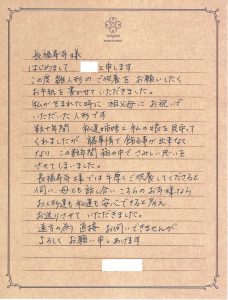 長福寿寺様
はじめまして と申します
この度 雛人形の ご供養を お願いしたく
お手紙を書かせていただきました。
私が生まれた時に 祖父母に お祝いで
いただいた人形です
数十年間 私達姉妹と 私の娘を見守って
くれましたが 諸事情で 飾る事が出来なく
なり、この数年間 箱の中で さみしい思いを
させてしまいました。
長福寿寺様では手厚くご供養してくださると
伺い、母とも話し合い こちらのお寺様なら
お人形達も私達も安心できると考え
お送りさせていただきました。
遠方の為 直接 お伺いできませんが
よろしく お願い申しあげます